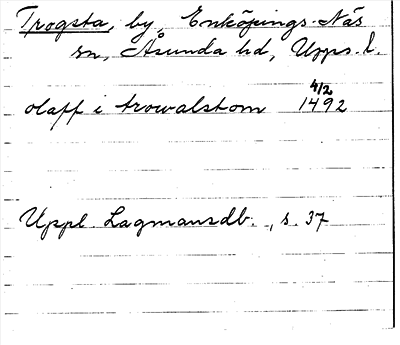 Trogsta, by, Enköpings-Näs
sn, Åsunda hd, Upps. l.
olaff i trowalstom 4/2 1492
Uppl. Lagmansdb., s. 37